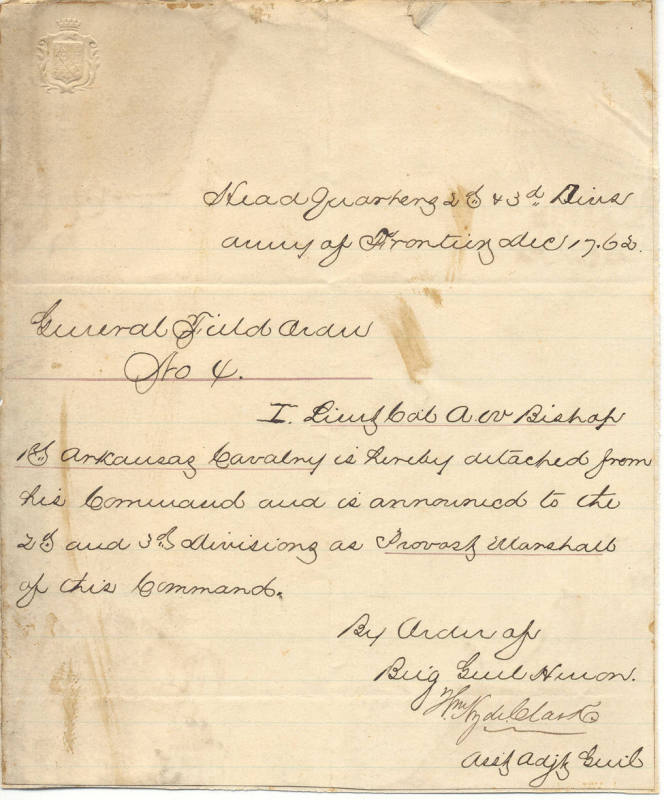 Head Quarters 2d & 3d Divs
Army of Frontier Dec 17. 62.
General Field Order
No 4.
I. Lieut Col A W Bishop
1st Arkansas Cavalry is hereby detached from
his Command and is announced to the
2d and 3d Divisions as Provost Marshall
of this Command.
By Order of
Brig Genl Herron.
Wm Hyde Clark
Asst Adjt Genl